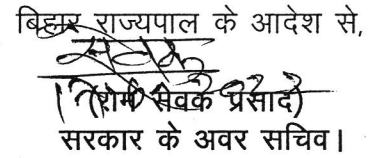 बिहार राज्यपाल के आदेश से,
(राम सेवक प्रसाद)
सरकार के अवर सचिव।